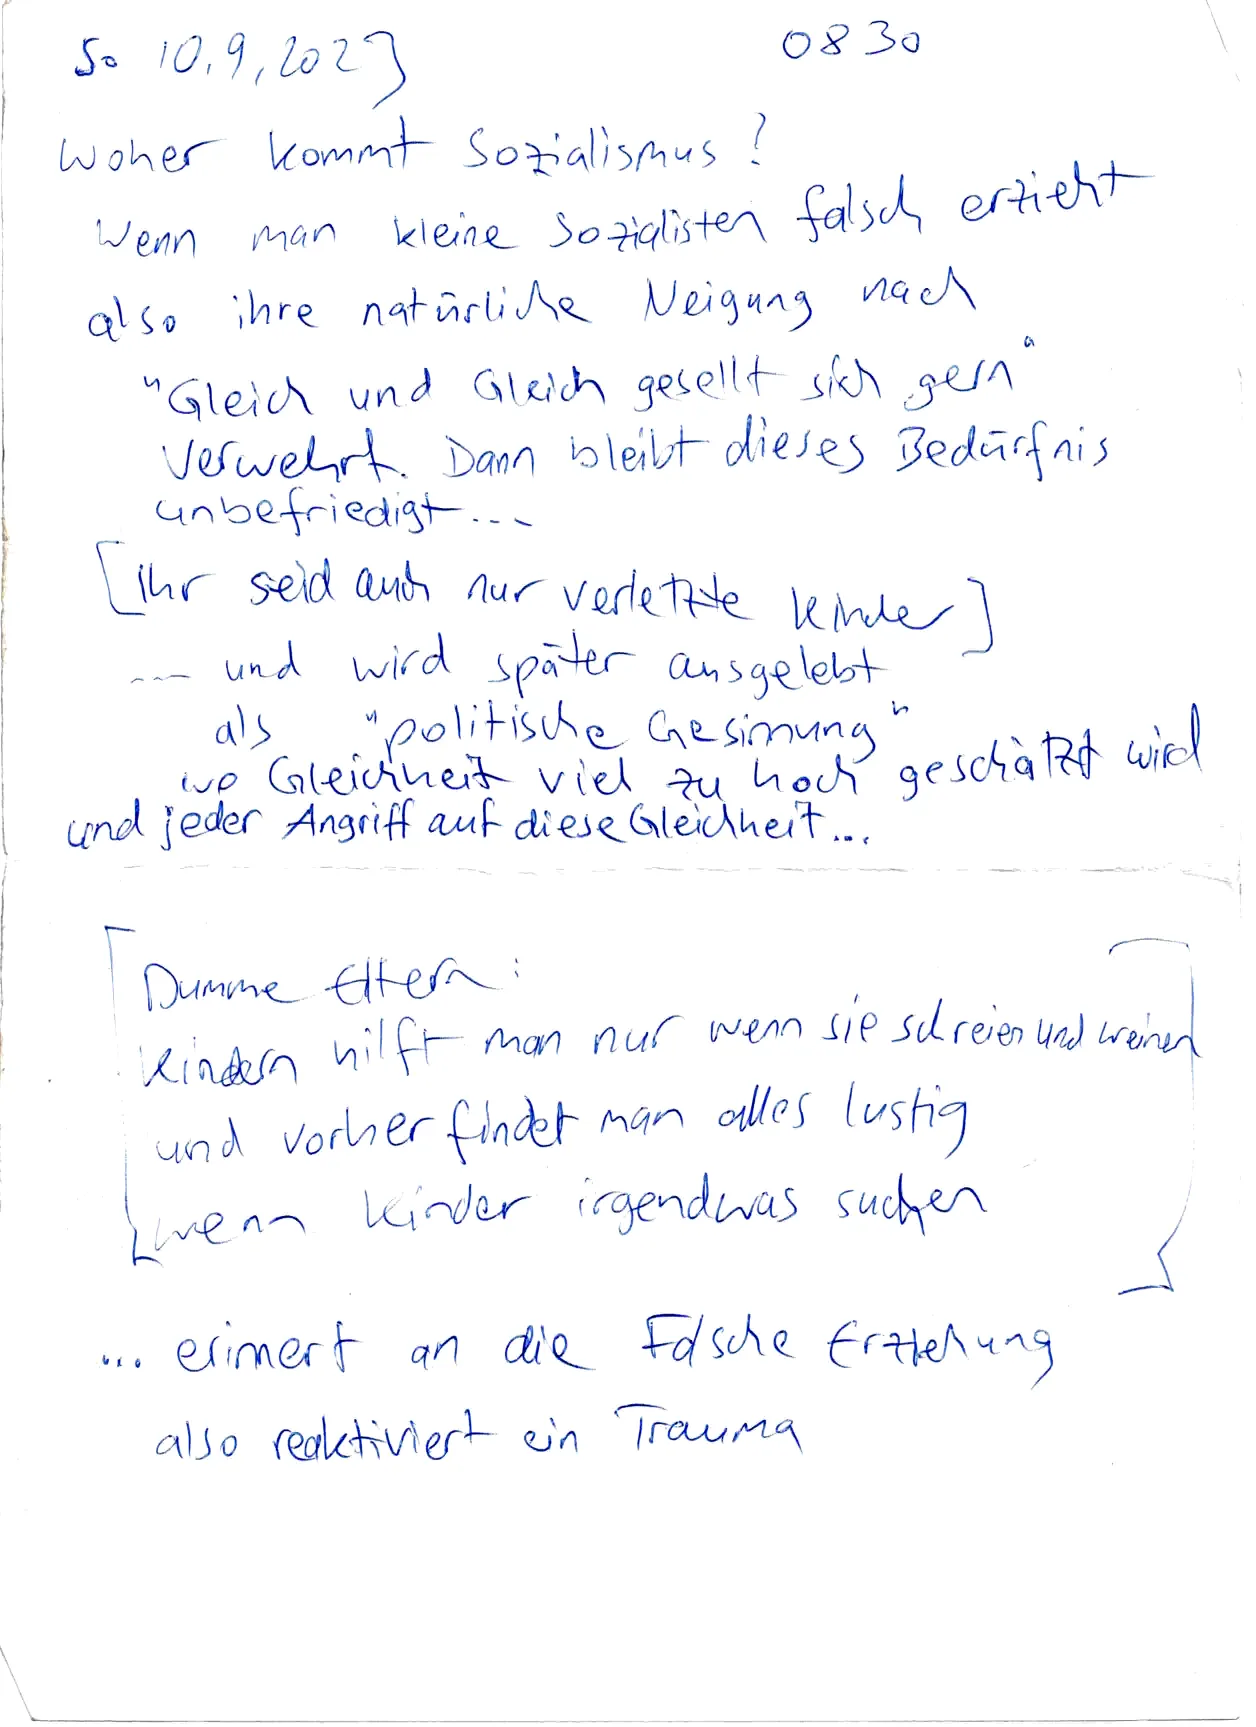 So 10.9.2023 0830
woher kommt Sozialismus?
Wenn man kleine Sozialisten falsch erzieht
also ihre natürliche Neigung nach
"Gleich und Gleich gesellt sich gern"
verwehrt. Dann bleibt dieses Bedürfnis
unbefriedigt...
[ihr seid auch nur verletzte kinder]
... und wird später ausgelebt
als "politische Gesinnung"
wo Gleichheit viel zu hoch geschätzt wird
und jeder Angriff auf diese Gleichheit...
[Dumme Eltern:
kindern hilft man nur wenn sie schreien und weinen
und vorher findet man alles lustig
wenn kinder irgendwas suchen]
... erinnert an die Falsche Erziehung
also reaktiviert ein Trauma